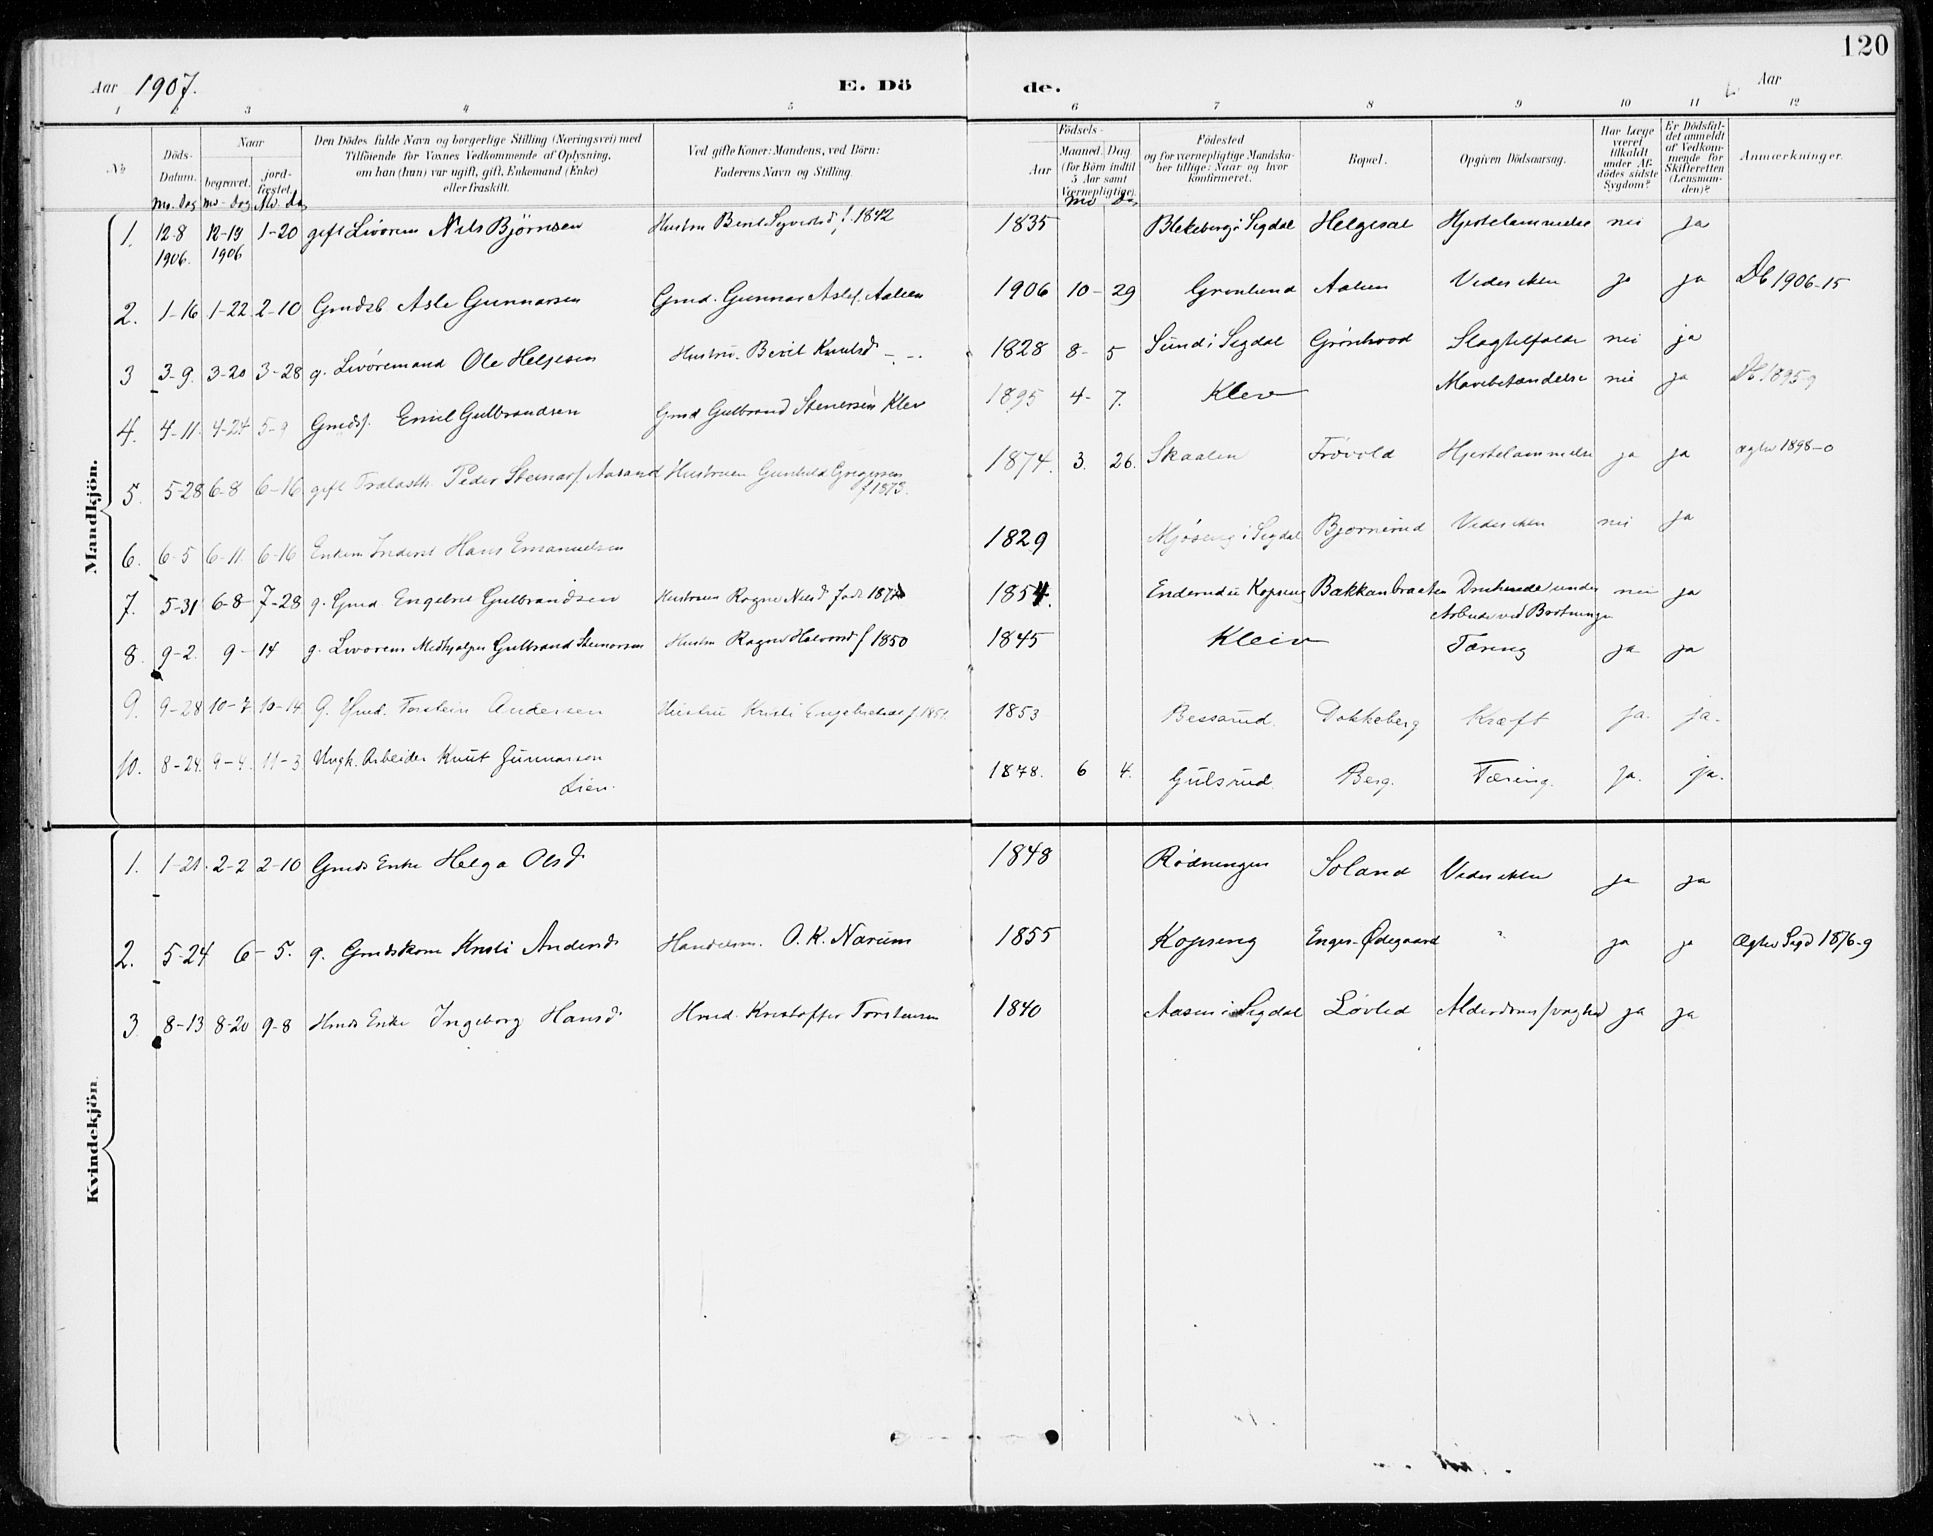 120
Aar 1907. E. Dö de. Aar
1 2 3 4 5 6 7 8 9 10 11 12
No
Döds-Datum. Mo. Dag
Naar begravet. Mo - Dag jord-fæstet. Mo. Da
Den Dödes fulde Navn og borgerlige Stilling (Næringsvei) med Tilföiende for Voxnes Vedkommende af Oplysning, om han (hun) var ugift, gift, Enkemand (Enke) eller fraskilt.
Ved gifte Koner: Mandens, ved Börn: Faderens Navn og Stilling.
Födsels-Aar Maaned. Dag (for Börn indtil 5 Aar samt Værnepligtige). Mo Da
Födested og for værnepligtige Mandskaber tillige: Naar og hvor konfirmeret.
Bopæl.
Opgiven Dödsaarsag.
Har Læge været tilkaldt under Afdödes sidste Sygdom?
Er Dödsfaldet anmeldt af Vedkommende for Skifteretten (Lensmanden)?
Anmærkninger.
Mandkjön.
1. 12-8 1906. 12-19 1906 1-20 gift Livörem Nils Björnsen Hustru Berit Syverdsd. f. 1842 1835 Blekeberg i Sigdal Helgesæt Hjertelammelse nei ja
2. 1-16 1-22 2-10 Gmdsb Asle Gunnarsen Gmd. Gunnar Aslesf. Aalien 1906 10-29 Grønlund Aalien Vides ikke ja ja Db 1906-15
3 3-9. 3-20 3-28 g. Livøremand Ole Helgesen Hustru. Berit Knutsd. 1828 8-5 Sund i Sigdal Grönhovd Slagtilfælde nei ja
4. 4-11. 4-24 5-9 Gmdsf. Emil Gulbrandsen Gmd Gulbrand Stenersen Klev 1895 4-7. Klev Mavebetændelse nei ja Db. 1895-9
5. 5-28 6-8 6-16 gift Trælastk. Peder Steinarsf. Aasand Hustruen Gunhild Gregersen f 1873. 1874. 3. 26. Skaalen Frøvold Hjertelammelse ja ja ægtev 1898-0
6. 6-5 6-11. 6-16 Enkem Inderst Hans Emanuelsen 1829 i Sigdal Bjørnerud Vides ikke nei ja
7. 5-31 6-8- 7-28 g. Gmd. Engebret Gulbrandsen Hustruen Ragne Nilsd. født 187 1854. Enderud u Kopseng Bakkanbraaten Druknede under Arbeide ved Brötning nei ja
8. 9-2. 9-14 g. Livørem Medhjælper Gulbrand Steinarsen Hustru Ragne Halvorsd f 1850 1845 Kleiv Tæring ja ja
9. 9-28 10-7 10-14 g. Gmd. Torstein Andersen Hustru Kristi Engebretsd. f. 1851. 1853 Bessarud. Dokkeberg Kræft ja. ja.
10. 8-24. 9-4. 11-3 Ungk. Arbeider Knut Gunnarson Lien. 1878. 6 4. Gulsrud. Berg. Tæring. Ja. ja.
Kvindekjön.
1. 1-21. 2-2 2-10 Gmds Enke Helga Olsd. 1848 Rødningen Soland Vides ikke ja ja
2. 5-24 6-5. g. Gmdskone Kristi Andersd. Handelsm. O. K. Narum 1855 Kopseng Enger-Ødegaard " ja ja Ægtev Sigd 1876-9
3 8-13 8-20 9-8 Hmds Enke Ingeborg Hansd. Hmd. Kristoffer Torstensen 1840 Aasen i Sigdal Løvlid Alderdomssvaghed ja ja